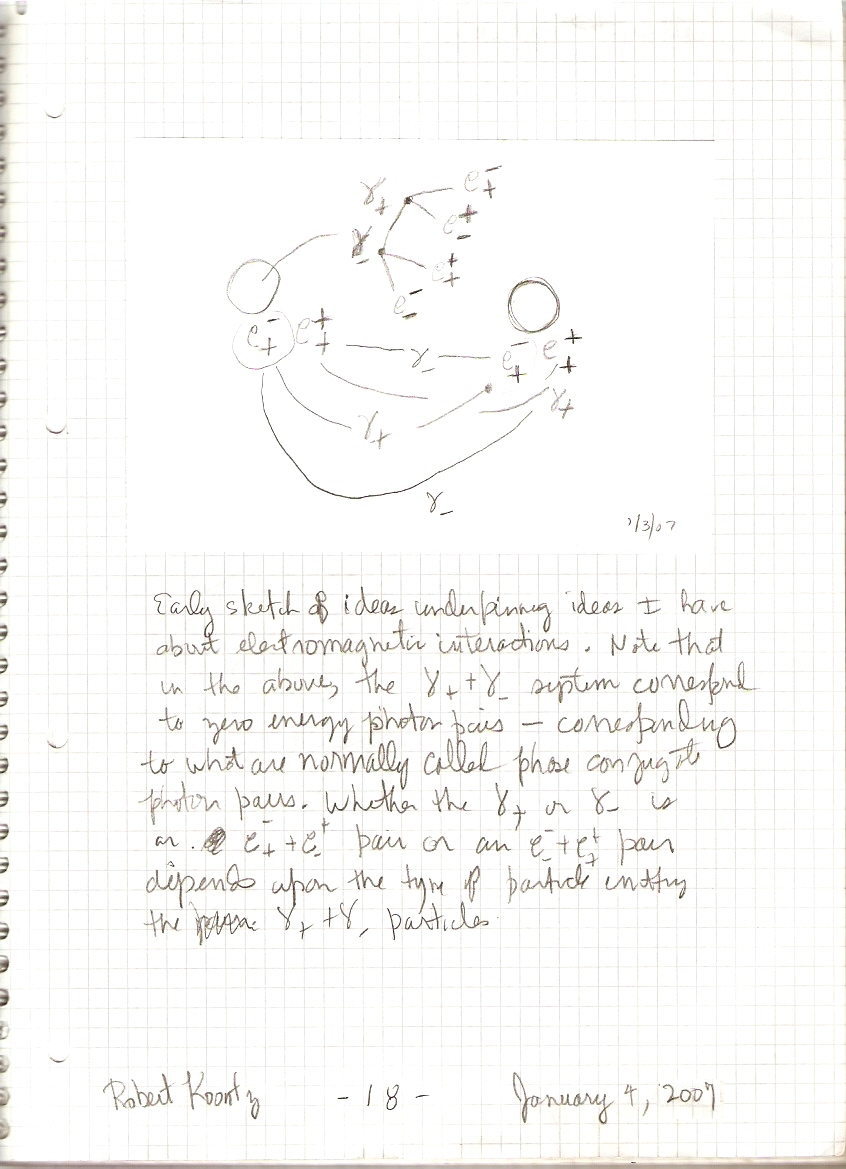 γ₊ e₊⁻
e₋⁺
γ₋ e₊⁺
e₋⁻
e₊⁻ e₊⁺ γ₋ e₊⁻ e₊⁺
γ₊ γ₊
γ₋
1/3/07
Early sketch of ideas underpinning ideas I have
about electromagnetic interactions. Note that
in the above, the γ₊ + γ₋ system correspond
to zero energy photon pairs — corresponding
to what are normally called phase conjugate
photon pairs. Whether the γ₊ or γ₋ is
an e₊⁻ + e₋⁺ pair or an e₋⁻ + e₊⁺ pair
depends upon the type of particle emitting
the γ₊ + γ₋ particles.
Robert Koontz - 18 - January 4, 2007